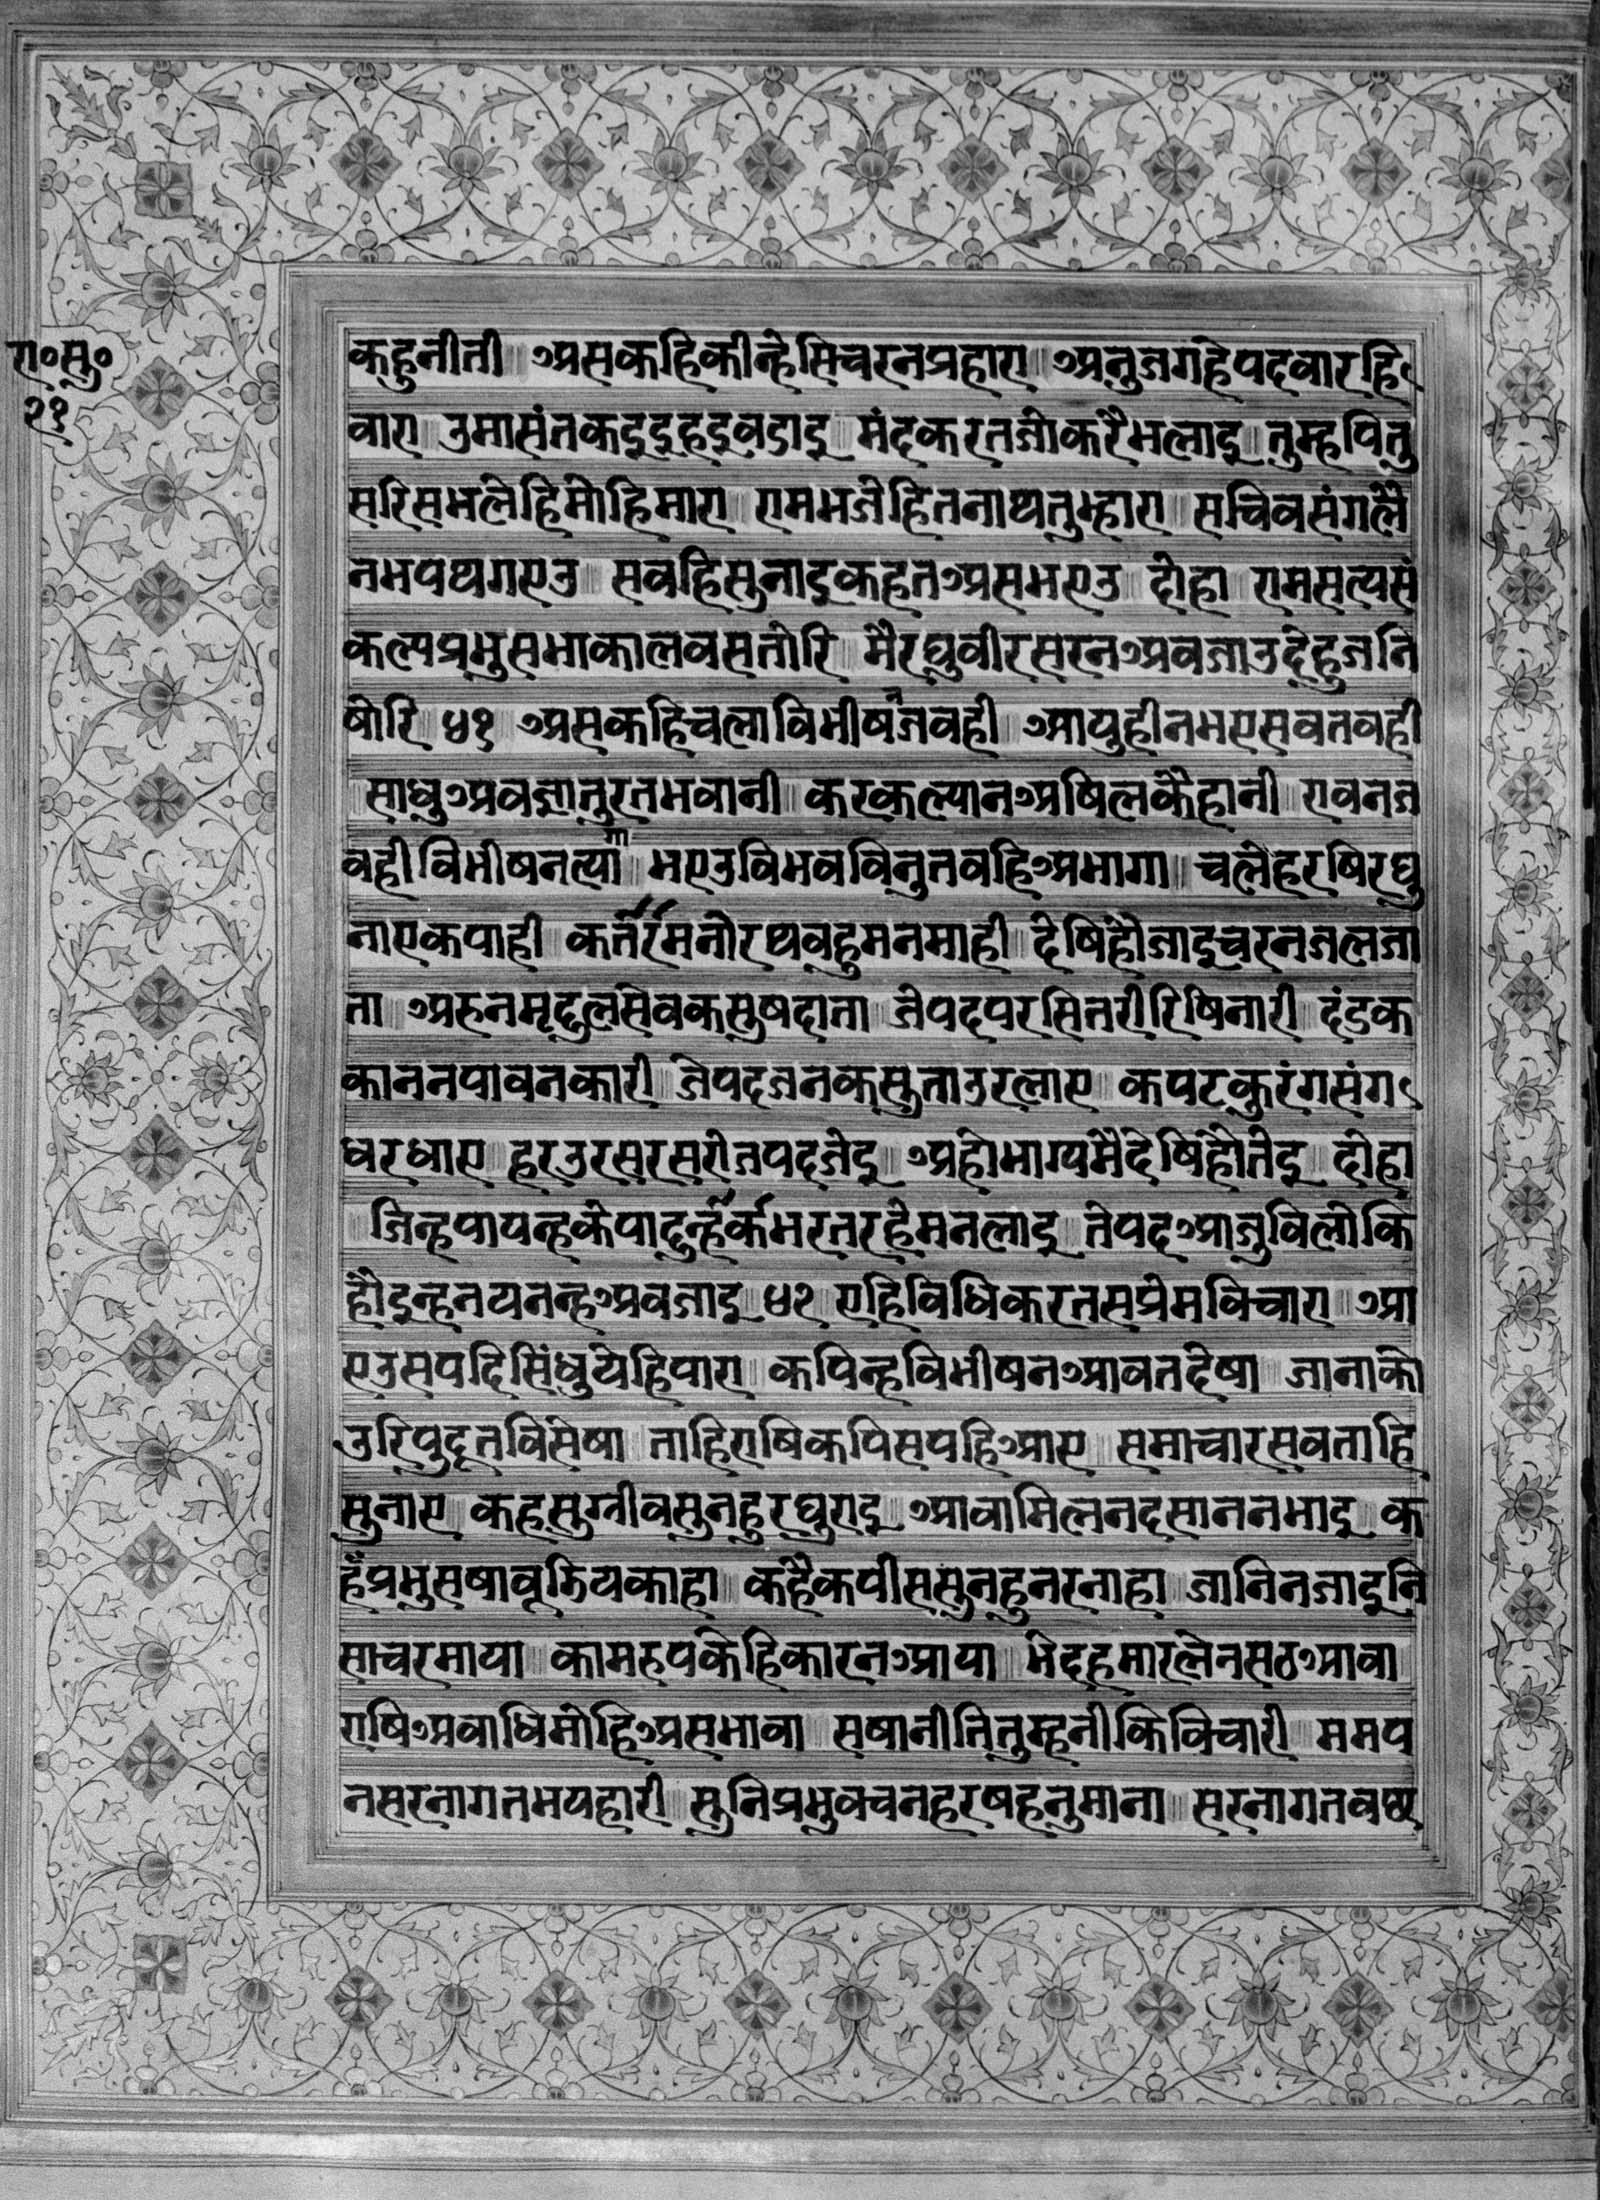 रा॰सु॰
२१
कहुनीती अस‌कहिकीन्हेसिचरनप्रहारा अनुजगहेपदवारहिं
वारा उमासंतकइइहइवडाइ मंदकरतजोकरैभलाइ तुम्हपितु
सरिसभलेहिमोहिमारा रामभजेहितनाथतुम्हारा सचिवसंगलै
नभपथगएउ सवहिसुनाइकहतअसभएउ दोहा रामसत्यसं
कल्पप्रभुसभाकालवसतोरि मैरघुवीरसरनअवजाउदेहुजनि
षोरि ४१ असकहिचलाविभीषनजवही आयुहीनभएसवतवही
साधुअवज्ञातुरतभवानी करकल्यानअषिलकैहानी रावनज
वहीविभीषनत्यागा भएउविभवविनुतवहिअभागा चलेहरषिरघु
नाएकपाही करतमनोरथवहुमनमाही देषिहौजाइचरनजलजा
ता अरुनमृदुलसेवकसुषदाता जेपदपरसितरीरिषिनारी दंडक
काननपावनकारी जेपदजनकसुताउरलाए कपटकुरंगसंग
धरधाए हरउरसरसरोजपदजेइ अहोभाग्यमैदेषिहौतेइ दोहा
जिन्हपायन्हकेपादुकन्हभरतरहेमनलाइ तेपदआजुविलोकि
हौंइन्हनयनन्हअवजाइ ४२ एहिविधिकरतसप्रेमविचारा आ
एउसपदिसिंधुयेहिपारा कपिन्हविभीषनआवतदेषा जानाको
उरिपुदूतविसेषा ताहिराषिकपिसपहिआए समाचारसवताहि
सुनाए कहसुग्रीवसुनहुरघुराइ आवामिलनदसाननभाइ क
हँप्रभुसषावूझियकाहा कहैकपीससुनहुनरनाहा जानिनजाइनि
साचरमाया कामरुपकेहिकारनआया भेदहमारलेनसठआवा
राषिअवाधिमोहिअसभावा सषानीतितुम्हनीकिविचारी ममप
नसरनागतभयहारी सुनिप्रभुवचनहरषहनुमाना सरनागतवछ